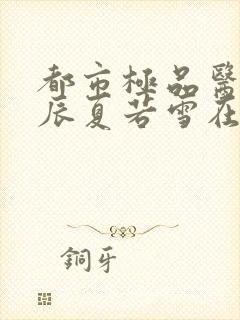 都市極品醫
辰夏若雪在
銅牙